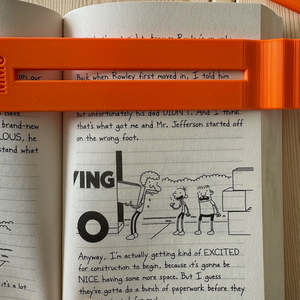 our
brand-new
LOUS, he
stand what
it's a lot
Back when Rowley first moved in, I told him
but unfortunately his dad DIDN'T. And I think
that's what got me and Mr. Jefferson started off
on the wrong foot.
VING
Anyway, I'm actually getting kind of EXCITED
for construction to begin, because it's gonna be
NICE having some more space. But I guess
they've gotta do a bunch of paperwork before they